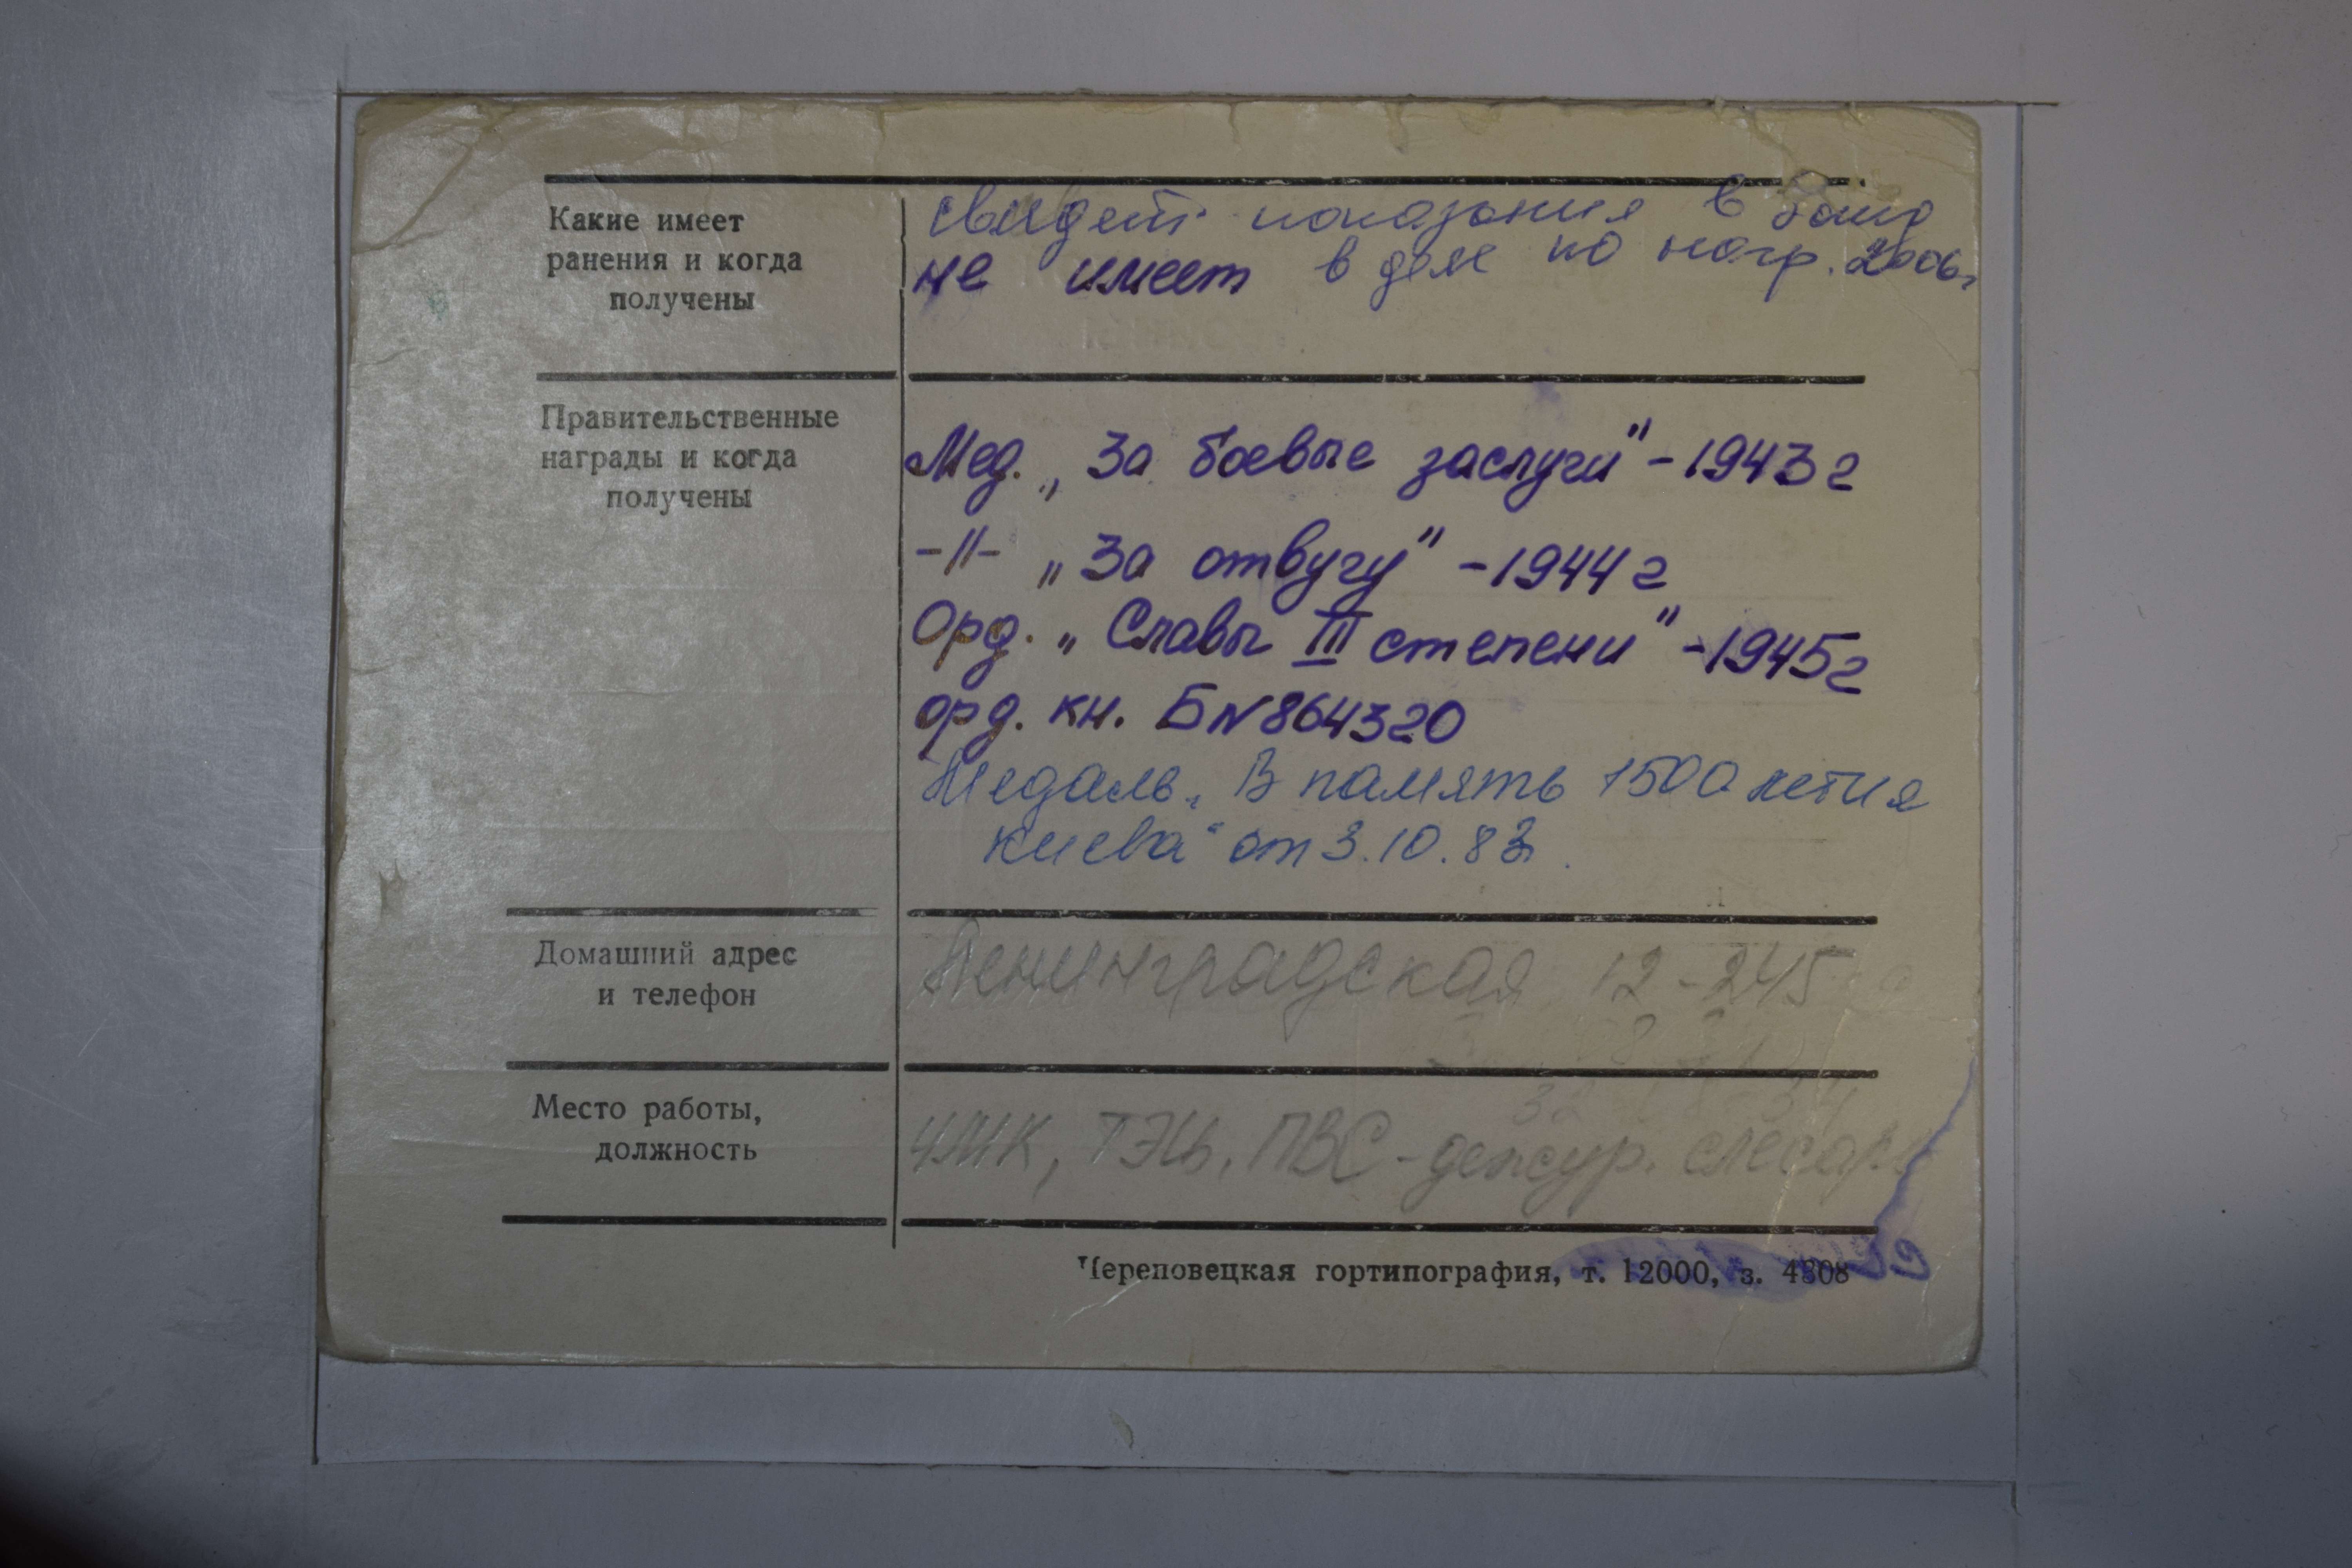 Какие имеет
ранения и когда
получены
свидет. показания в
не имеет в деле по нагр. 2006г
Правительственные
награды и когда
получены
Мед. „За боевые заслуги" - 1943 г
-//- „За отвугу" - 1944 г
Орд. „Славы III степени" - 1945 г
орд. кн. Б N 864320
Медаль „В память 1500 летия
Киева" от 3.10.83
Домашний адрес
и телефон
Ленинградская 12-245
Место работы,
должность
ЧМК, ТЭЦ, ПВС - дежур. слесарь
Череповецкая гортипография, т. 12000, з. 4808